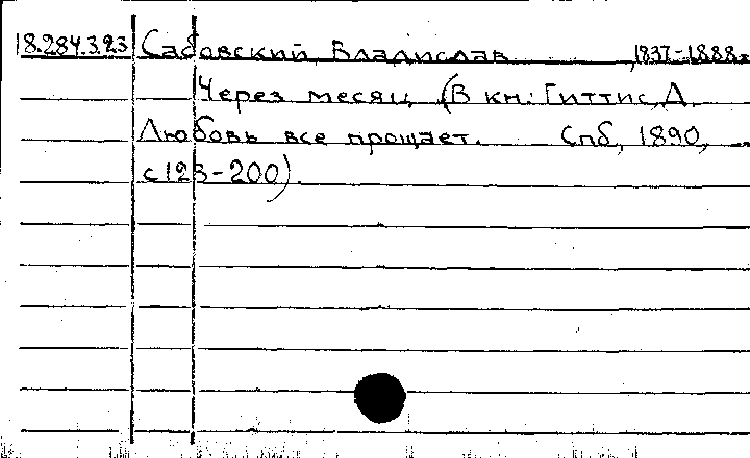 18.284.3.23 Сабовский, Владислав, 1837-1888.
Через месяц. (В кн.: Гиттис, Д.
Любовь все прощает. Спб, 1890,
с 123-200).